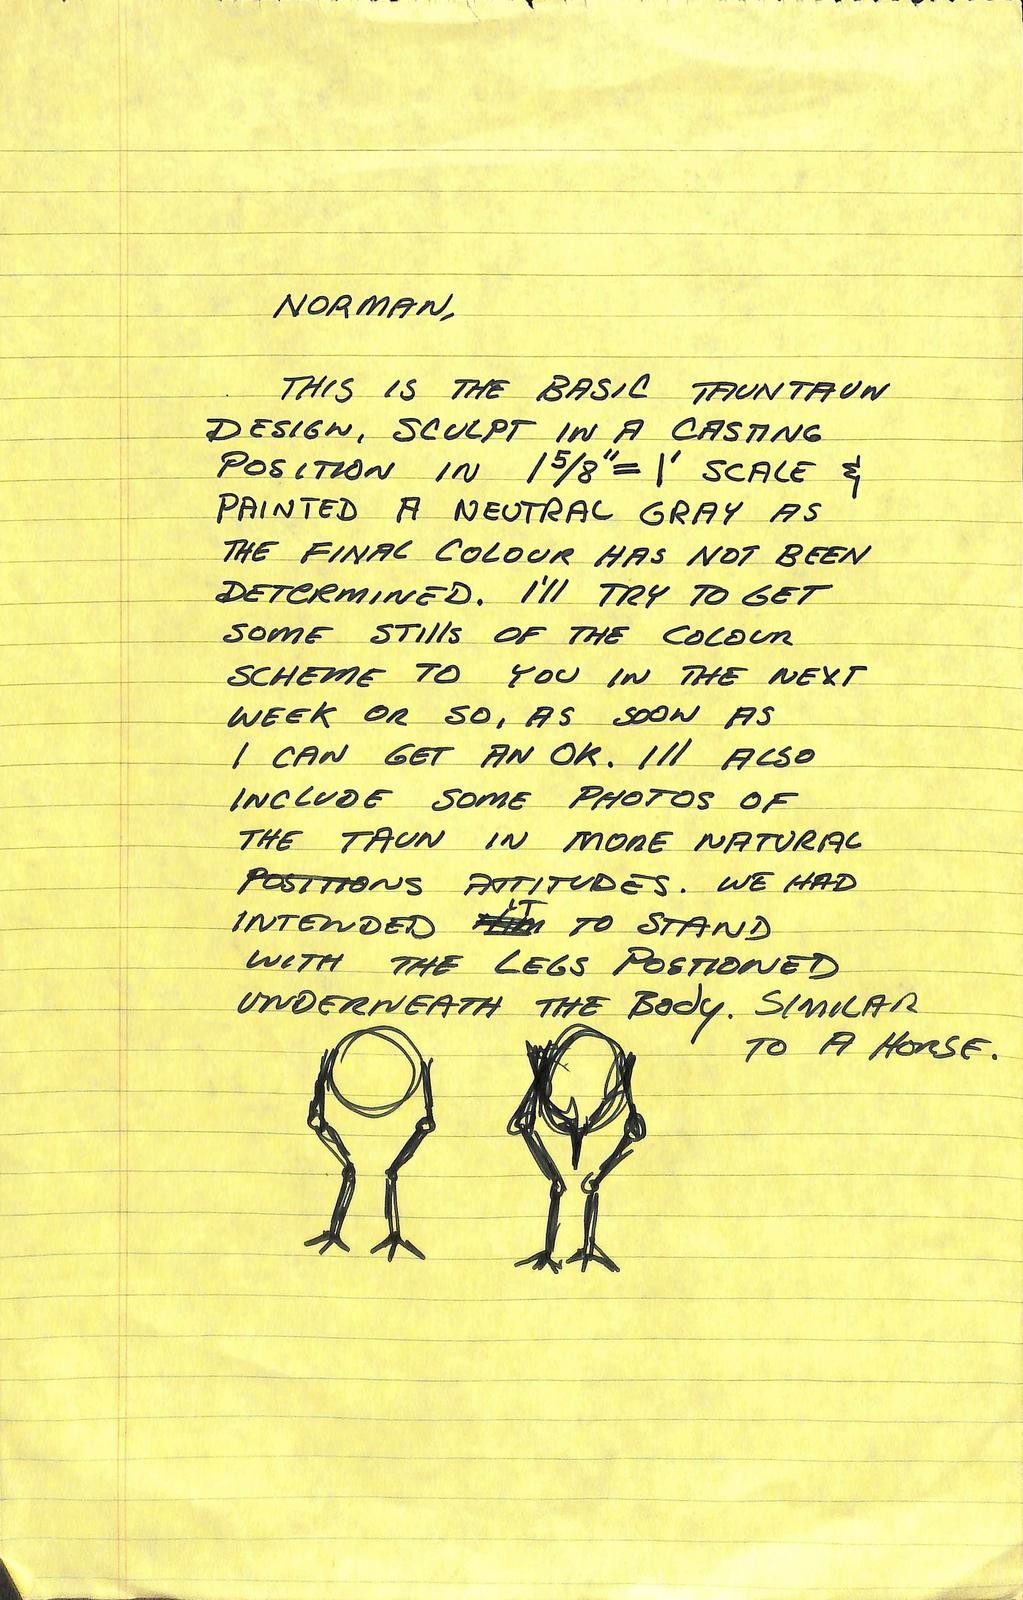 NORMAN,
THIS IS THE BASIC TAUNTAUN
DESIGN, SCULPT IN A CASTING
POSITION IN 1 5/8" = 1' SCALE &
PAINTED A NEUTRAL GRAY AS
THE FINAL COLOUR HAS NOT BEEN
DETERMINED. I'll TRY TO GET
SOME STIlls OF THE COLOUR
SCHEME TO YOU IN THE NEXT
WEEK OR SO, AS SOON AS
I CAN GET AN OK. I'll ALSO
INCLUDE SOME PHOTOS OF
THE TAUN IN MORE NATURAL
POSITIONS ATTITUDES. WE HAD
INTENDED IT TO STAND
WITH THE LEGS POSTIONED
UNDERNEATH THE Body. SIMILAR
TO A HORSE.